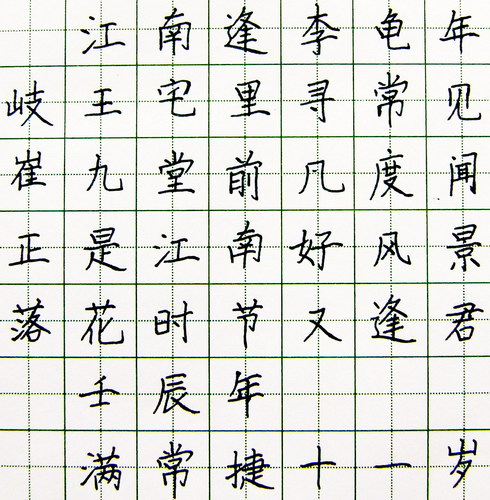 江南逢李龟年
岐王宅里寻常见
崔九堂前凡度闻
正是江南好风景
落花时节又逢君
壬辰年
满常捷十一岁